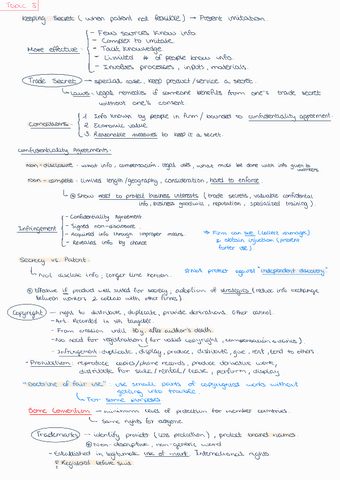 Topic 8
Keeping Secret (when patent not feasible) → Prevent imitation.
More effective:
- Few sources know info
- Complex to imitate
- Tacit Knowledge
- Limited # of people know info.
- Involves processes, inputs, materials.
Trade Secret → special case, keep product/service a secret.
Laws: legal remedies if someone benefits from one's trade secret
without one's consent
Conditions:
1. Info known by people in firm / bounded to confidentiality agreement.
2. Economic value.
3. Reasonable measures to keep it a secret.
Confidentiality Agreements:
Non-disclosure - what info, compensation, legal uses, what must be done with info given to
workers.
Non-compete - Limited length/geography, consideration, hard to enforce
Show need to protect business interests (trade secrets, valuable confidential
info, business goodwill, reputation, specialized training).
Infringement
- Confidentiality Agreement
- Signed non-disclosure.
- Acquired info through improper means.
- Reveales info by chance
→ Firm can sue (collect damages)
& obtain injunction (prevent
further use).
Secrecy vs. Patent.
Not disclose info, longer time horizon.
☆ Not protect against "independent discovery"
Effective if product well suited for secrecy, adoption of strategies (reduce info exchange
between workers & collab with other firms)
Copyright - right to distribute, duplicate, provide derivations. Other cannot.
- Art. Recorded in sth tangible.
- From creation until 70y. after author's death.
- No need for registration (for valid copyright,
- Infringement: duplicate, display, produce, distribute, give, rent, lend to others
- Prohibition: reproduce copies/phone records, produce derivative works,
distribute for sale/rental/lease, perform, display
"Doctrine of fair use": use small parts of copyrighted works without
getting into trouble.
For some purposes
Berne Convention - minimum level of protection for member countries.
same rights for everyone
Trademarks - identify products (less protection), protect brand names.
Non-descriptive, non-generic word
- Established in legitimate use of mark. International rights
Registered before said